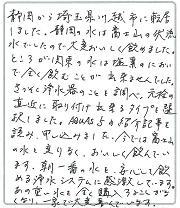 静岡から埼玉県川越市に転居
しました。静岡の水は富士山の伏流
水でしたので大変おいしく飲めました。
ところが関東の水は塩素のにおい
で全く飲むことが出来ませんでした。
さっそく浄水器のことを調べ、元栓の
直近に取り付け出来るタイプを選
択しました。
読み、申し込みました。今では富士山
の水と変りなく、おいしく飲んでい
ます。朝一番の水を、安心して飲
める浄水システムに感激しています。
重い水を全く購入することがな
くなり、一家で大変喜んでいます。